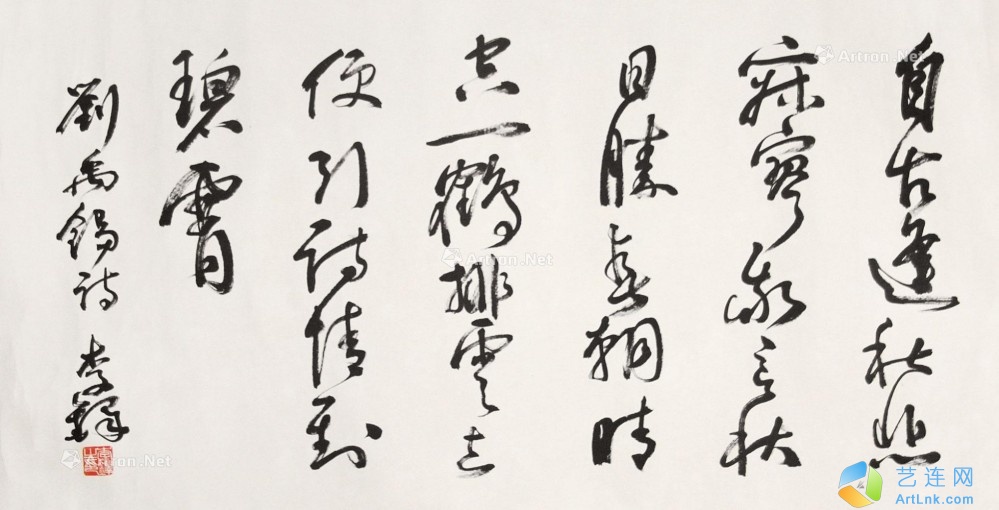 自古逢秋悲
寂寥我言秋
日勝春朝晴
空一鶴排雲上
便引詩情到
碧霄
劉禹錫詩 李鐸
Artron.Net
Artron.Net
Artron.Net
艺连网
ArtLnk.com